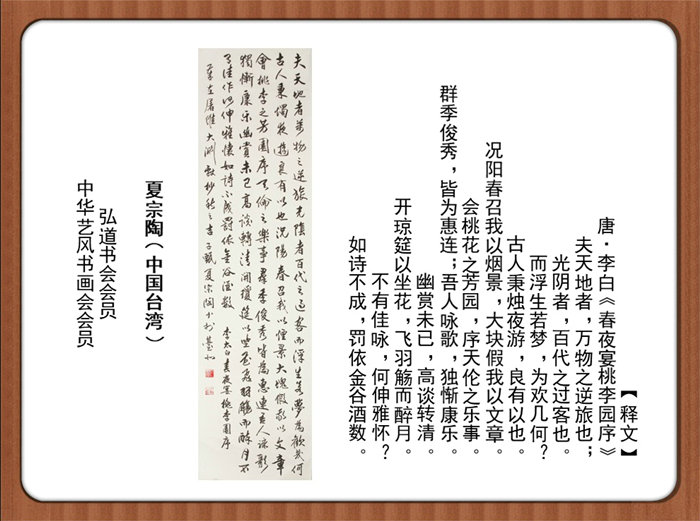 【释文】
唐·李白《春夜宴桃李园序》
夫天地者，万物之逆旅也；
光阴者，百代之过客也。
而浮生若梦，为欢几何？
古人秉烛夜游，良有以也。
况阳春召我以烟景，大块假我以文章。
会桃花之芳园，序天伦之乐事。
群季俊秀，皆为惠连；吾人咏歌，独惭康乐。
幽赏未已，高谈转清。
开琼筵以坐花，飞羽觞而醉月。
不有佳咏，何伸雅怀？
如诗不成，罚依金谷酒数。
夫天地者萬物之逆旅光陰者百代之過客而浮生若夢為歡幾何
古人秉燭夜遊良有以也況陽春召我以煙景大塊假我以文章
會桃李之芳園序天倫之樂事群季俊秀皆為惠連吾人詠歌
獨慚康樂幽賞未已高談轉清開瓊筵以坐花飛羽觴而醉月不
有佳作何伸雅懷如詩不成罰依金谷酒數 李太白春夜宴桃李園序
歲在屠維大淵獻杪秋之吉 夏宗陶
夏宗陶（中国台湾）
弘道书会会员
中华艺风书画会会员